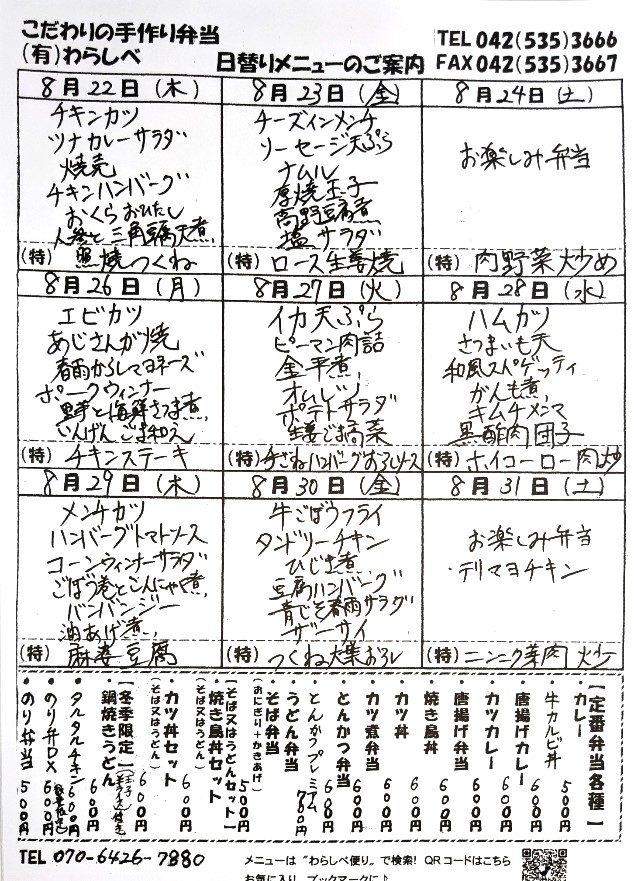 こだわりの手作り弁当
(有)わらしべ
日替りメニューのご案内
TEL 042(535)3666
FAX 042(535)3667
8月22日(木)
チキンカツ
ツナカレーサラダ
焼売
チキンハンバーグ
おくらおひたし
人参と三角豆腐天煮
(特) 照焼つくね
8月23日(金)
チーズインメンチ
ソーセージ天ぷら
ナムル
厚焼玉子
高野豆腐煮
塩サラダ
(特) ロース生姜焼
8月24日(土)
お楽しみ弁当
(特) 肉野菜炒め
8月26日(月)
エビカツ
あじさんが焼
春雨からしマヨネーズ
ポークウィンナー
里芋と海鮮さつま煮
いんげんごま和え
(特) チキンステーキ
8月27日(火)
イカ天ぷら
ピーマン肉詰
金平煮
オムレツ
ポテトサラダ
生姜ごま高菜
(特) 手ごねハンバーグおろしソース
8月28日(水)
ハムカツ
さつまいも天
和風スパゲッティ
がんも煮
キムチメンマ
黒酢肉団子
(特) ホイコーロー肉炒
8月29日(木)
メンチカツ
ハンバーグトマトソース
コーンウィンナーサラダ
ごぼう巻とこんにゃく煮
バンバンジー
油あげ煮
(特) 麻婆豆腐
8月30日(金)
牛ごぼうフライ
タンドリーチキン
ひじき煮
豆腐ハンバーグ
青じそ春雨サラダ
ザーサイ
(特) つくね大葉おろし
8月31日(土)
お楽しみ弁当
・テリマヨチキン
(特) ニンニク芽肉炒
【定番弁当各種】
・カレー 500円
・牛カルビ丼 600円
・唐揚げカレー 600円
・カツカレー 600円
・唐揚げ弁当 600円
・焼き鳥丼 600円
・カツ丼 600円
・カツ煮弁当 600円
・とんかつ弁当 600円
・とんかつプレミアム 700円
・うどん弁当
・そば弁当
(おにぎり+かきあげ) 500円
【そば又はうどんセット】
・焼き鳥丼セット 600円
(そば又はうどん)
・カツ丼セット 600円
(そば又はうどん)
【冬季限定】
鍋焼きうどん 600円
・タルタルチキン 600円
・のり弁当DX 600円
・のり弁当 500円
TEL 070-6426-7880
メニューは“わらしべ便り”で検索! QRコードはこちら
お気に入り、ブックマークに♪